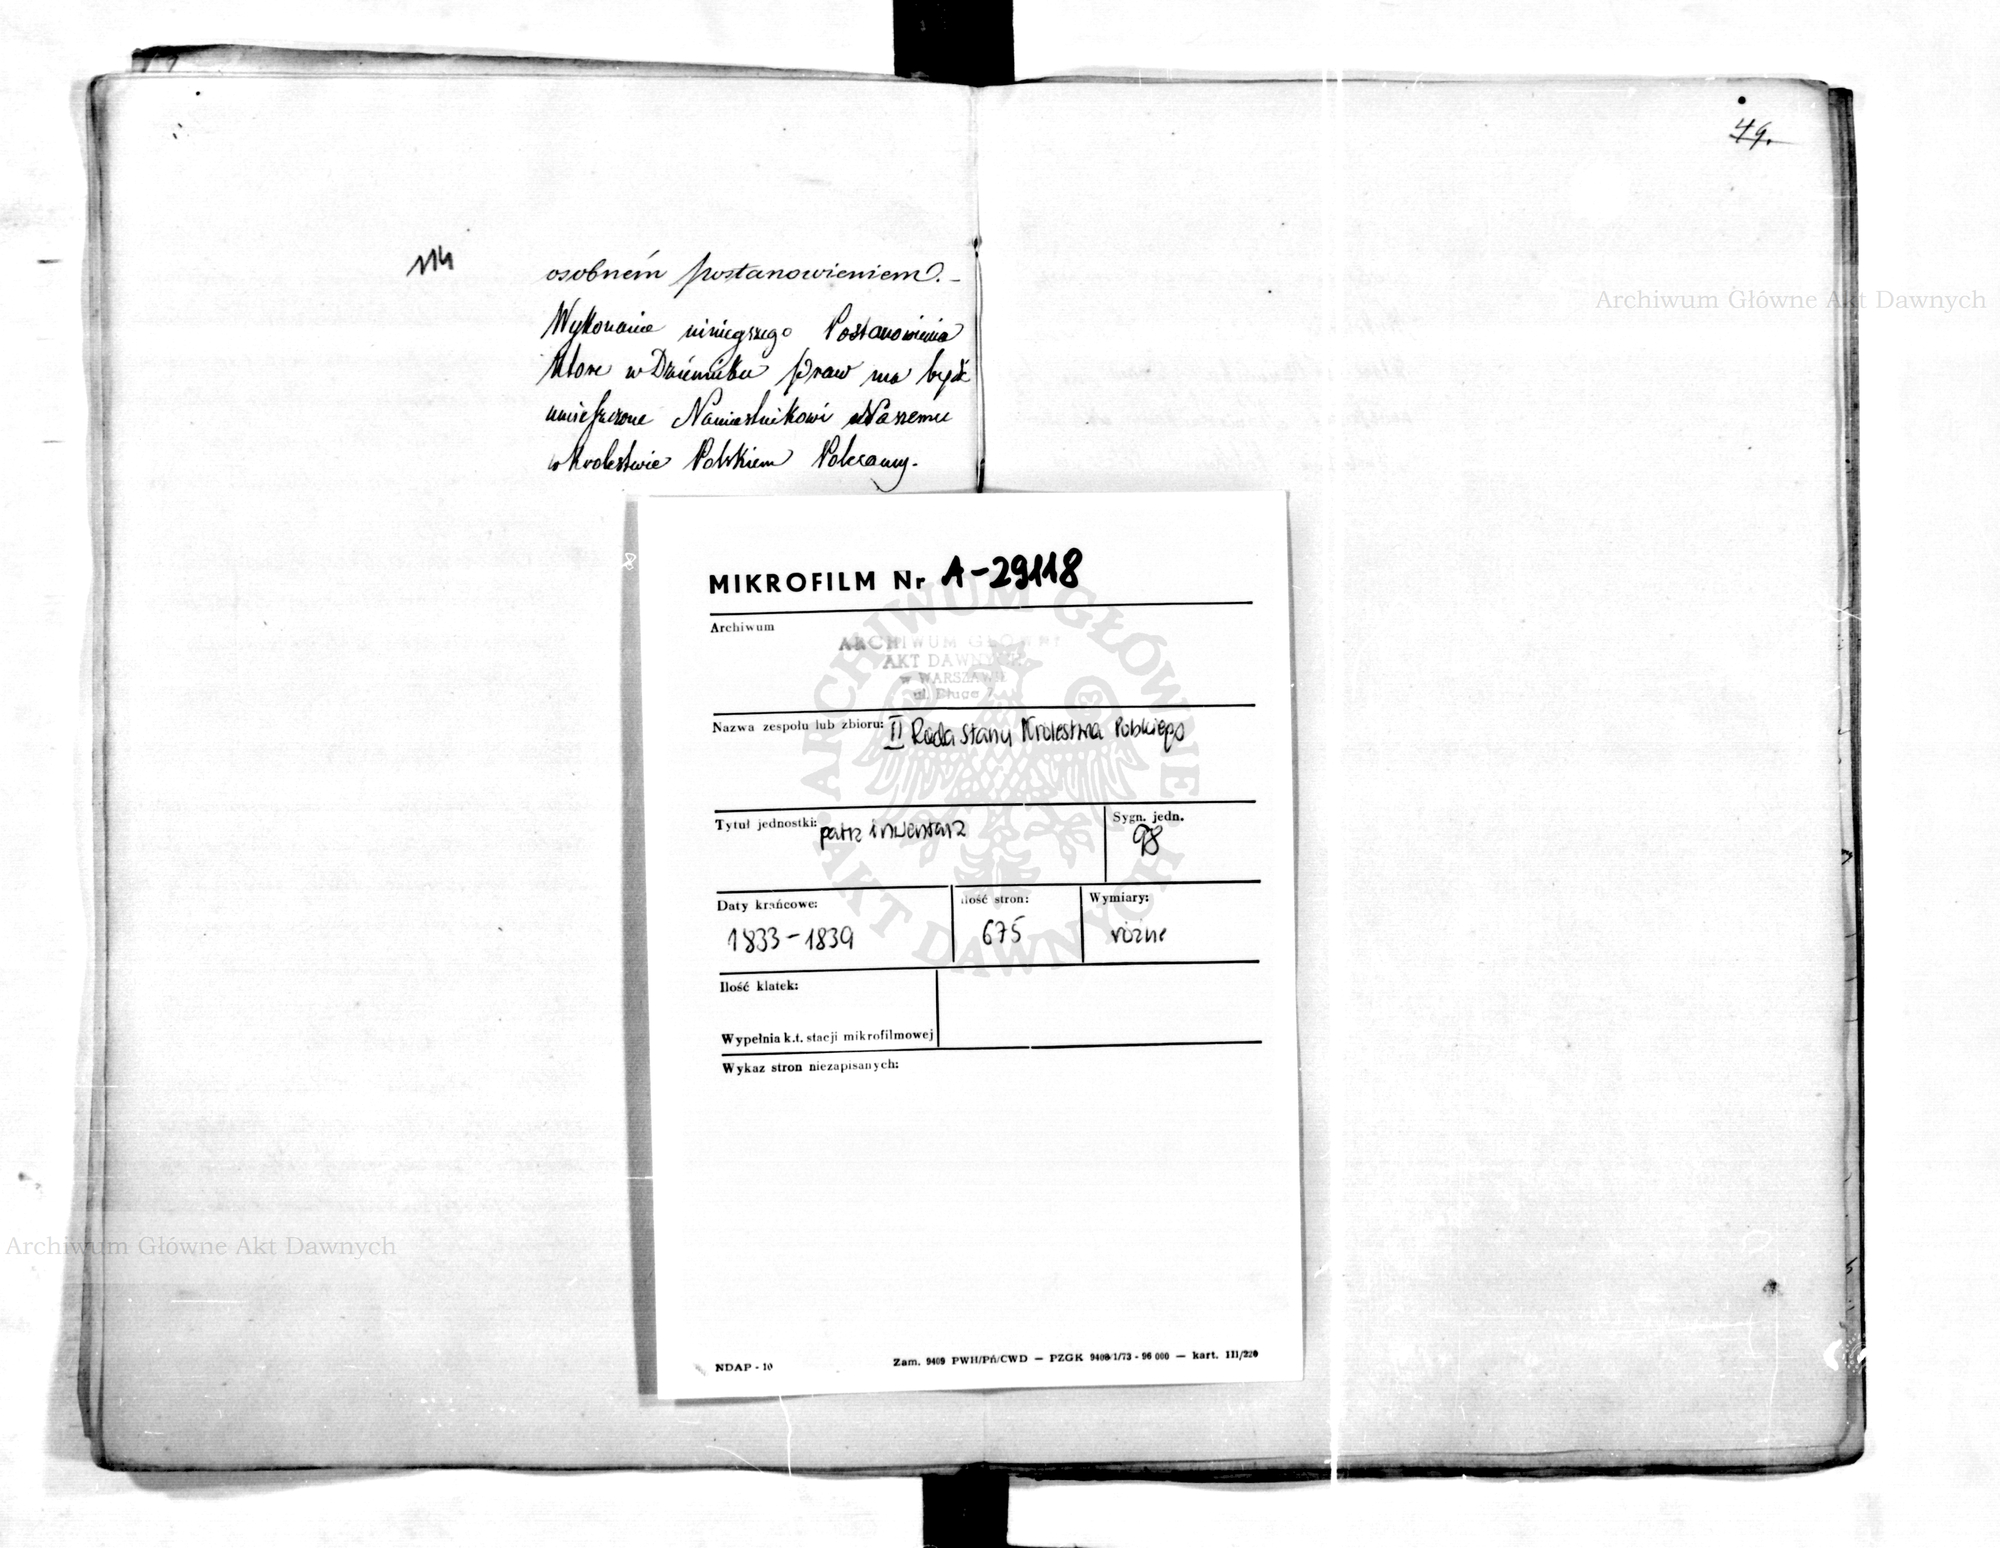 49.
114
osobném postanowieniem. -
Wykonanie ninieyszego Postanowienia
które w Dzienniku praw ma bydź
umieszczone Namiestnikowi Naszemu
w Królestwie Polskiem Polecamy.
Archiwum Główne Akt Dawnych
MIKROFILM Nr A-29118
Archiwum
ARCHIWUM GŁÓWNE
AKT DAWNYCH
w WARSZAWIE
ul. Długa 7
Nazwa zespołu lub zbioru: II Rada Stanu Królestwa Polskiego
Tytuł jednostki: patrz inwentarz
Sygn. jedn.
98
Daty krańcowe:
1833-1839
ilość stron:
675
Wymiary:
różne
Ilość klatek:
Wypełnia k.t. stacji mikrofilmowej
Wykaz stron niezapisanych:
ARCHIWUM GŁÓWNE AKT DAWNYCH
Archiwum Główne Akt Dawnych
NDAP - 10
Zam. 9409 PWH/Pń/CWD — PZGK 9408/1/73 - 96 000 — kart. III/220